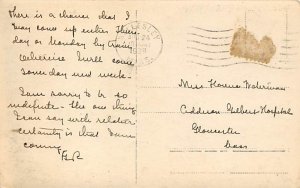 There is a chance that I
may come up either Thurs-
day or Monday by train,
Otherwise I will come
some day next week.
I am sorry to be so
indefinite - the one thing
I can say with relative
certainty is that I am
coming.
Miss Horace Waterman
Addison Gilbert Hospital
Gloucester
Mass